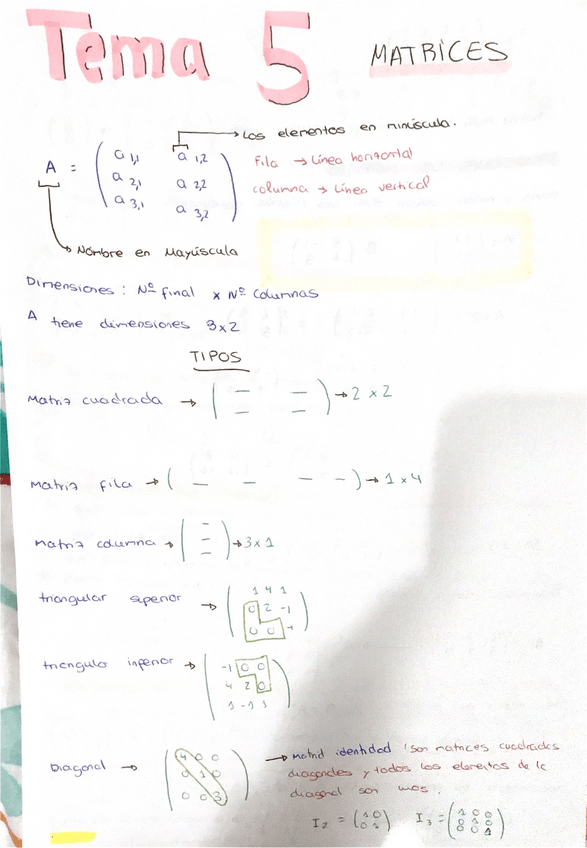 Tema 5 MATRICES
Los elementos en minúscula.
A = ( a 1,1 a 1,2
a 2,1 a 2,2
a 3,1 a 3,2 )
Fila → Línea horizontal
columna → Línea vertical
Nombre en Mayúscula
Dimensiones : Nº final x Nº columnas
A tiene dimensiones 3x2
TIPOS
Matriz cuadrada → ( — — — — ) → 2 x 2
Matriz fila → ( — — — — ) → 1 x 4
Matriz columna → ( — — — ) → 3 x 1
triangular superior → ( 1 4 1
0 2 -1
0 0 )
triangulo inferior → ( -1 0 0
4 2 0
1 -1 1 )
Diagonal → ( 4 0 0
0 1 0
0 0 3 )
→ Matriz identidad : son matrices cuadradas
diagonales y todos los elementos de la
diagonal son unos.
I2 = ( 1 0
0 1 )
I3 = ( 1 0 0
0 1 0
0 0 1 )